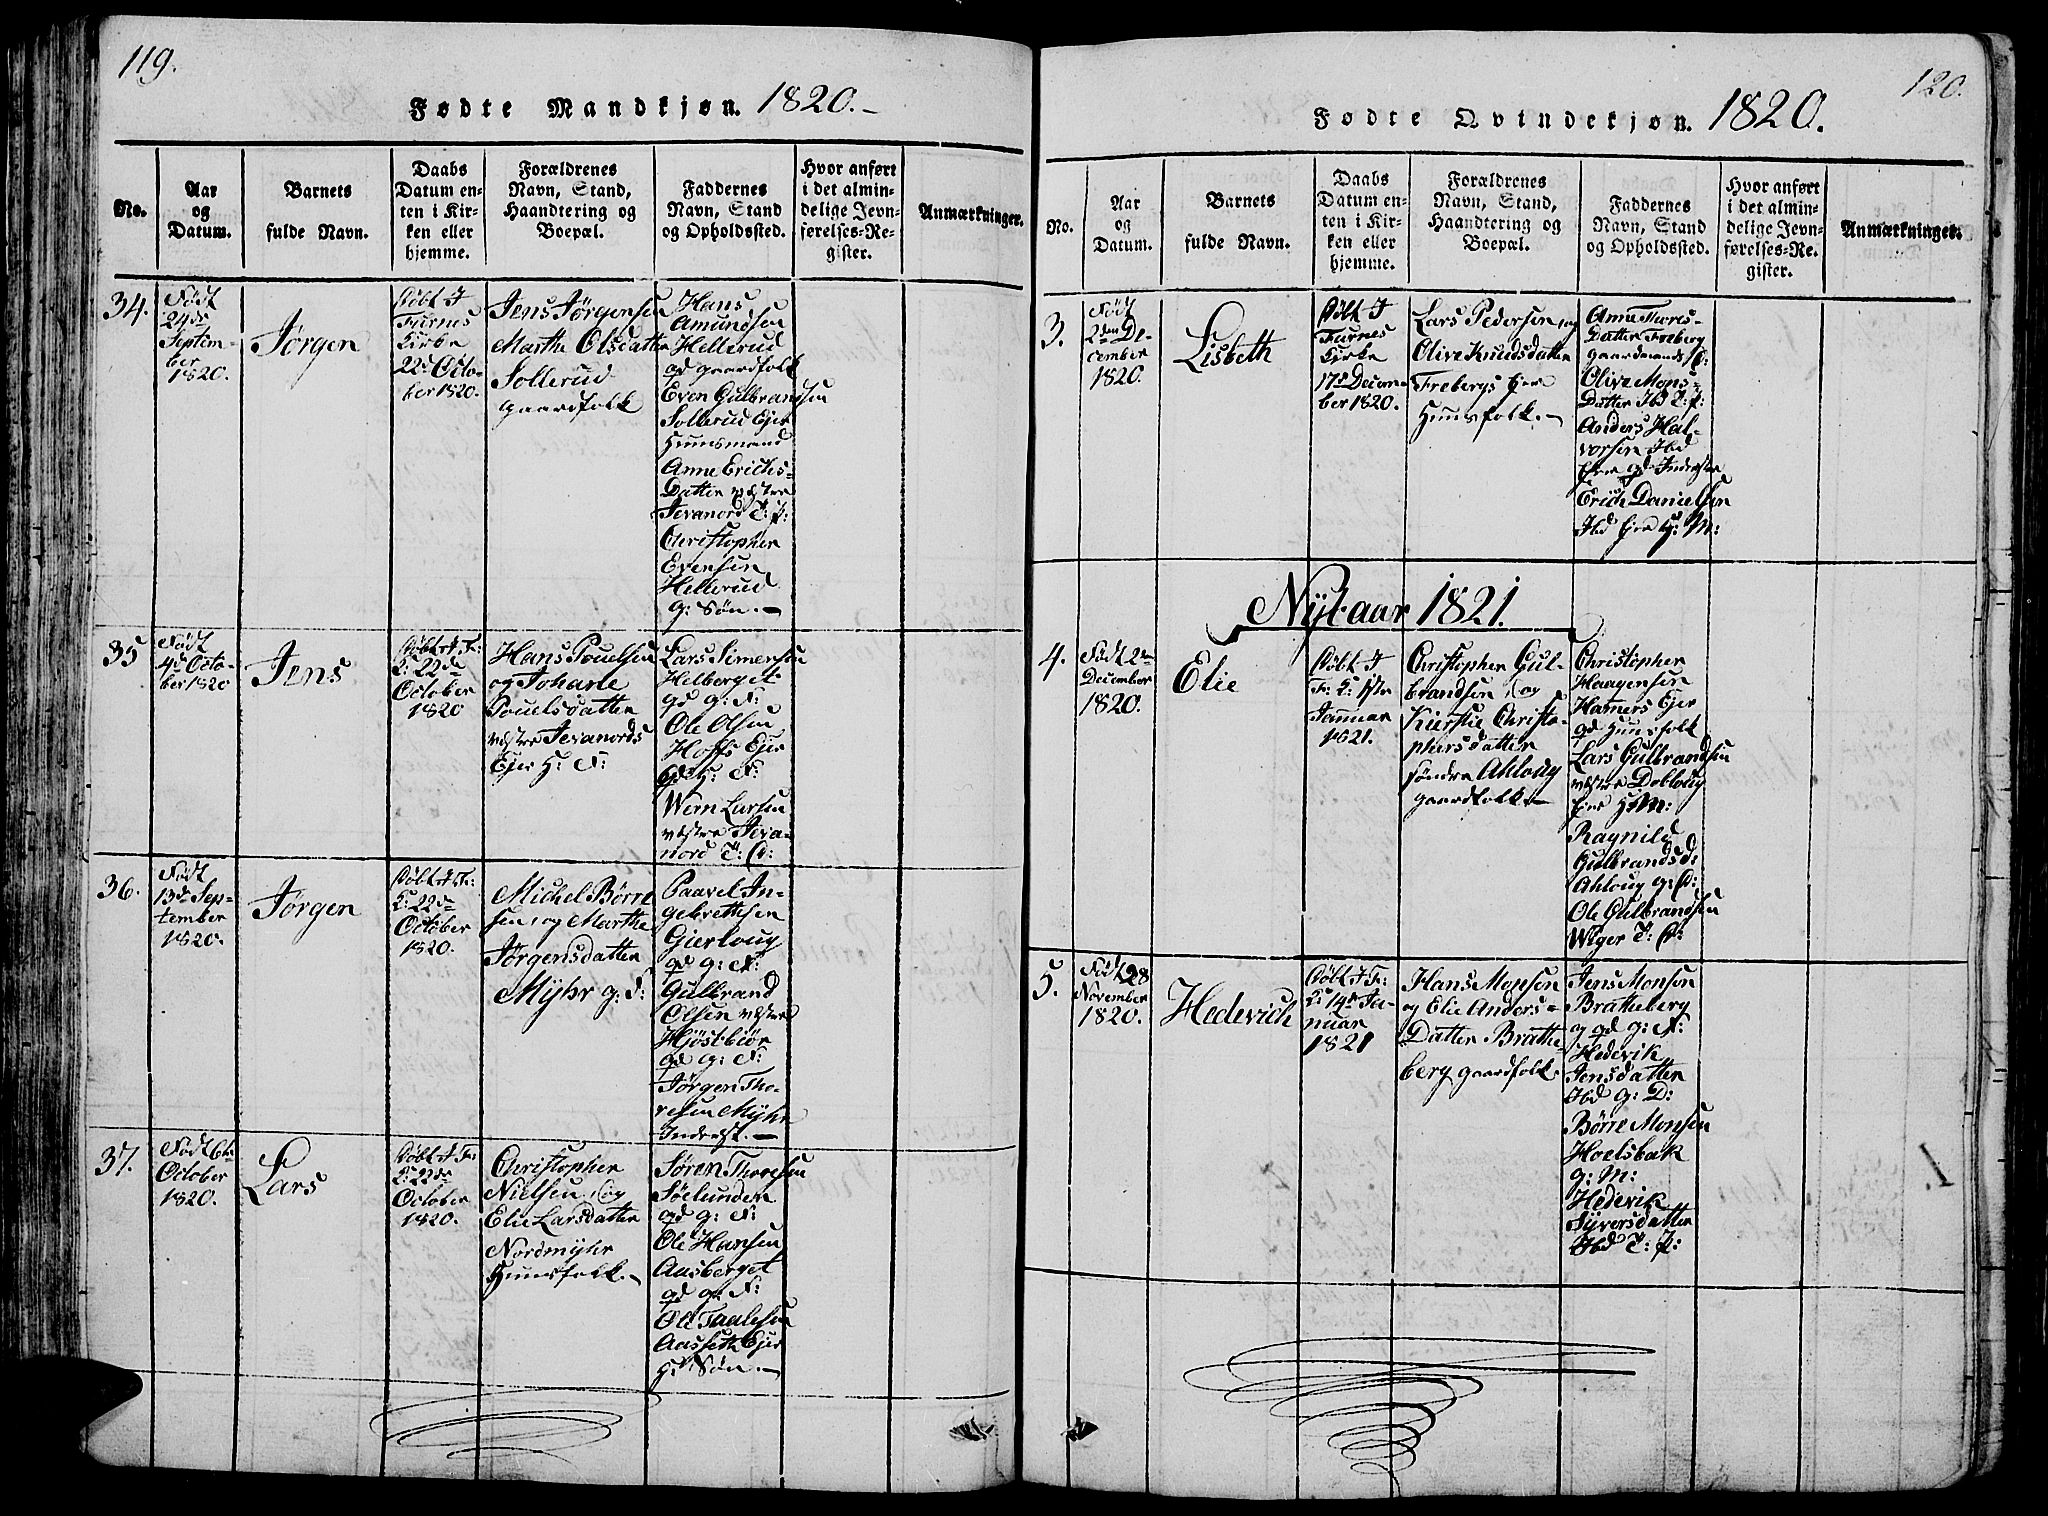 119.
Fødte Mandkjøn. 1820.-
No.
Aar
og
Datum.
Barnets
fulde Navn.
Daabs
Datum en-
ten i Kir-
ken eller
hjemme.
Forældrenes
Navn, Stand,
Haandtering og
Boepæl.
Faddernes
Navn, Stand
og Opholdssted.
Hvor anført
i det almin-
delige Jevn-
førelses-Re-
gister.
Anmærkninger.
34.
Født
24de
Septem-
ber
1820.
Jørgen
Døbt I
Furnes
Kirke
22de Octo-
ber 1820.
Jens Jørgensen
Marthe Olsdatter
Sollerud
gaardfolk
Hans
Amundsen
Hellerud
gd gaardfolk
Even Gulbrandsen
Sollerud Ejer
Huusmand
Anne Erichs-
Datter væstre
Jevanord T: p:
Christopher
Evensen
Hellerud
G: Søn.-
35
Født
4de Octo-
ber 1820
Jens
Døbt I F:
K: 22de
October
1820
Hans Pouelsen
og Joharle
Pouelsdatter
væstre Jevanords
Ejer H: F:
Lars Simensen
Helberget
gd g: F:
Ole Olsen
Hoffs Ejer
gd H: F:
Wern Larsen
væstre Jeva-
nord T: D:
36.
Født
13de Sep-
tember
1820.
Jørgen
Døbt I F:
K: 22de
October
1820.
Michel Børre
sen, og Marthe
Jørgensdatter
Mÿhr g: F:
Paavel In-
gebrettsen
Gjerloug
gd g: F:
Gulbrand
Olsen væstre
Hjøstbiør
gd g: F:
Jørgen Tho-
resen Mÿhr
Inderst.-
37.
Født 6te
October
1820.
Lars
Døbt I F:
K: 22de
October
1820.
Christopher
Nielsen, og
Elie Larsdatter
Nordmÿhr
Huusfolk.-
Søren Thoresen
Søelunden
gd g: F:
Ole Hansen
Aasberget
gd g: F:
Ole Taalesen
Aasseth Ejer
H: Søn.-
120.
Fødte Qvindekjøn. 1820.
No.
Aar
og
Datum.
Barnets
fulde Navn.
Daabs
Datum en-
ten i Kir-
ken eller
hjemme.
Forældrenes
Navn, Stand,
Haandtering og
Boepæl.
Faddernes
Navn, Stand
og Opholdssted.
Hvor anført
i det almin-
delige Jevn-
førelses-Re-
gister.
Anmærkninger.
3.
Født
2den De-
cember
1820.
Lisbeth
Døbt I
Furnes
Kirke
17de Decem-
ber 1820.
Lars Pedersen, og
Olive Knudsdatter
Frebergs Ejer
Huusfolk.-
Anne Thores-
Datter Freberg
gaardmands K:
Olive Mons-
Datter Ibd T: p:
Anders Hal-
vorsen Ibd
Ejer gd Inderste
Erich Danielsen
Ibd Ejer H: M:
Nÿtaar 1821.
4.
Født 2den
December
1820.
Elie
Døbt I
F: K: 1ste
Januar
1821.
Christopher Gul-
brandsen, og
Kierstie Christo-
phersdatter
søndre Ahloug
gaardfolk-
Christopher
Haagensen
Hamers Ejer
gd Huusfolk
Lars Gulbrandsen
væstre Dobloug
Ejer H: M:
Ragnild
Gulbrandsd:
Ahloug g: D:
Ole Gulbrandsen
Wiger T: D:
5.
Født 28
November
1820.
Hedevich
Døbt I F:
K: 14de Ja-
nuar
1821
Hans Monsen
og Elie Anders-
Datter Brathe-
berg gaardfolk
Jens Monsen
Bratheberg
og gd g: F:
Hedevik
Jensdatter
Ibd g: D:
Børre Monsen
Hoelsbak
g: M:
Hedevik
Syversdatter
Ibd T: p:
1.